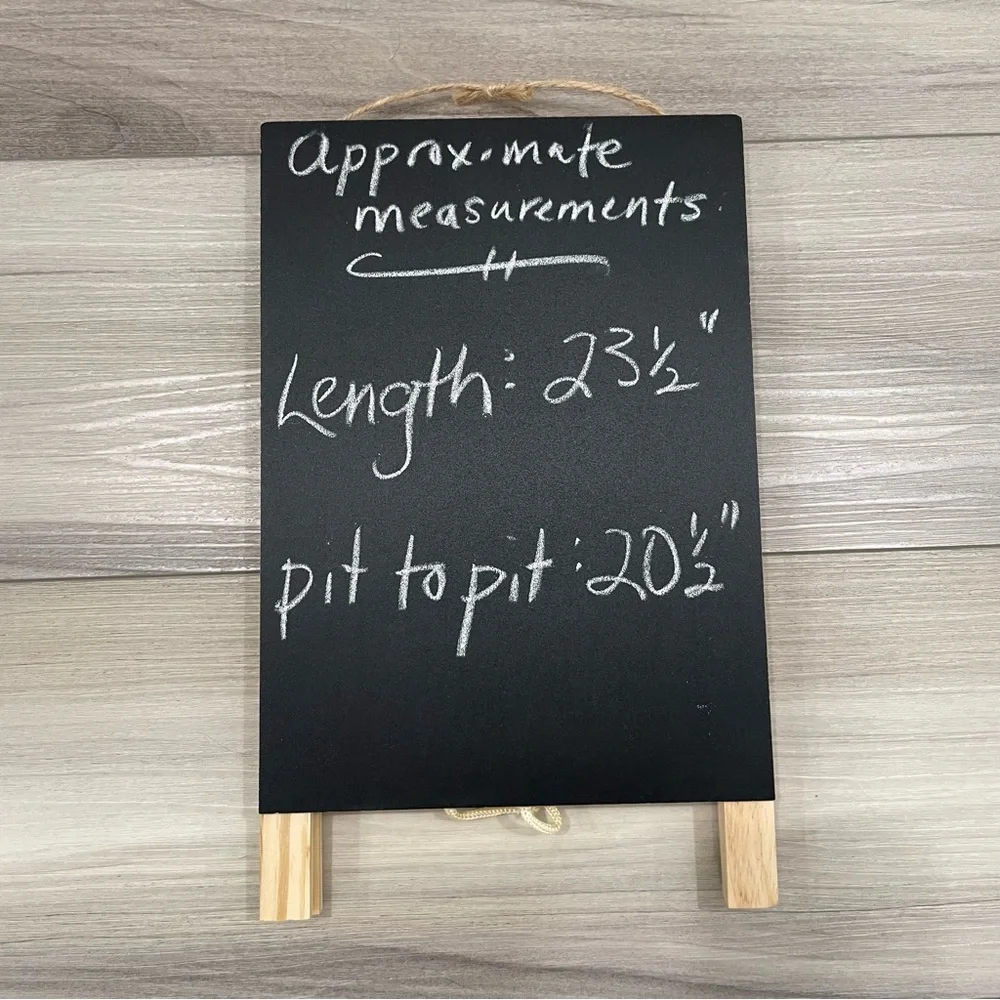 Approximate
measurements
Length: 23 ½"
pit to pit: 20 ½"